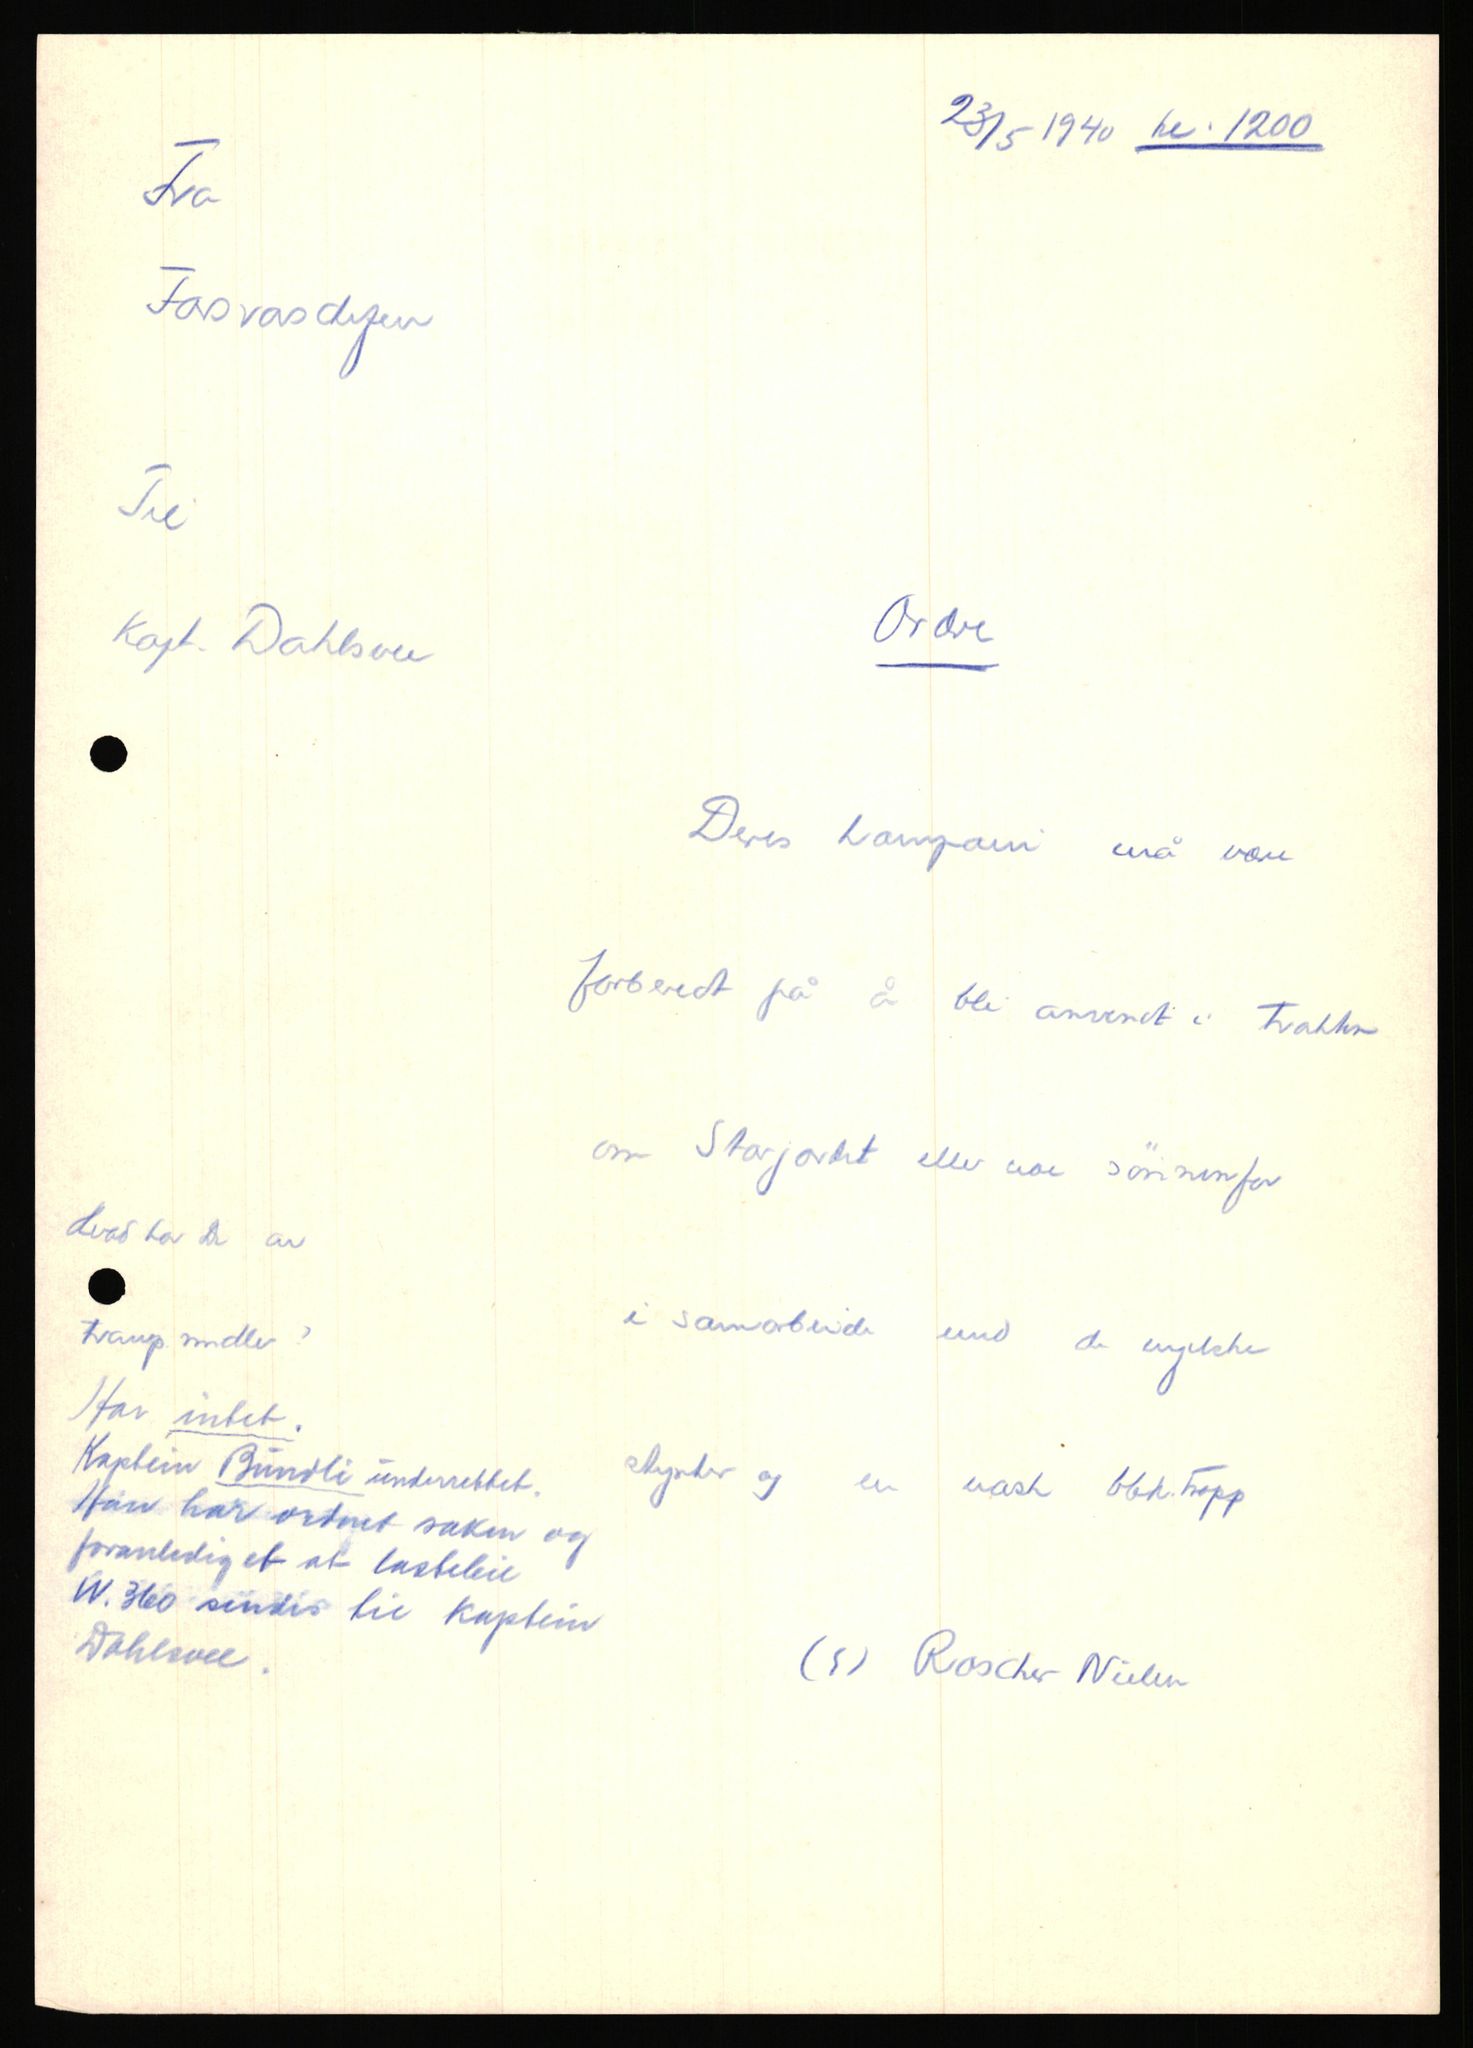 23/5 1940 kl. 1200
Fra
Forsvarssjefen
Til
Kapt. Dahlsvee
Ordre
Deres kompani må være
forberedt på å bli anvendt i trakten
om Storjordet eller noe sönnenfor
i samarbeide med de engelske
styrker og en norsk tropp
(s) Roscher Nielsen
Hvad har De av
transp. midler?
Har intet.
Kaptein Bundli underrettet.
Han har ordnet saken og
foranlediget at lastebil
W. 360 sendes til kaptein
Dahlsvee.